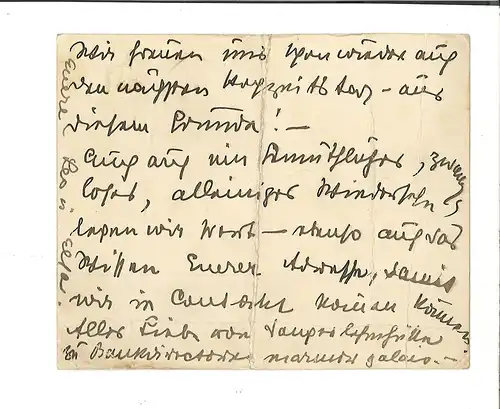 Wir freuen uns schon wieder auf
den nächsten Hochzeitstag - aus
diesem Grunde! -
Auch auf ein gemüthliches, zwang-
loses, alleiniges Wiedersehn,
legen wir Wert - ebenso auf das
Wissen Eurer Adresse, damit
wir in Contact kommen können.
Alles Liebe von
zu Bankdirectors
Euere